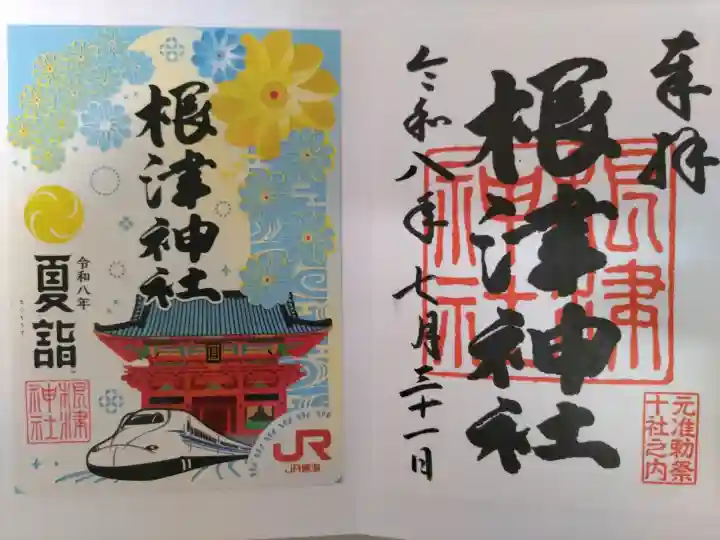 奉拝
根津神社
令和八年七月三十一日
根津神社
元准勅祭
十社之内
根津神社
令和八年
夏詣
根津神社
JR
JR東海